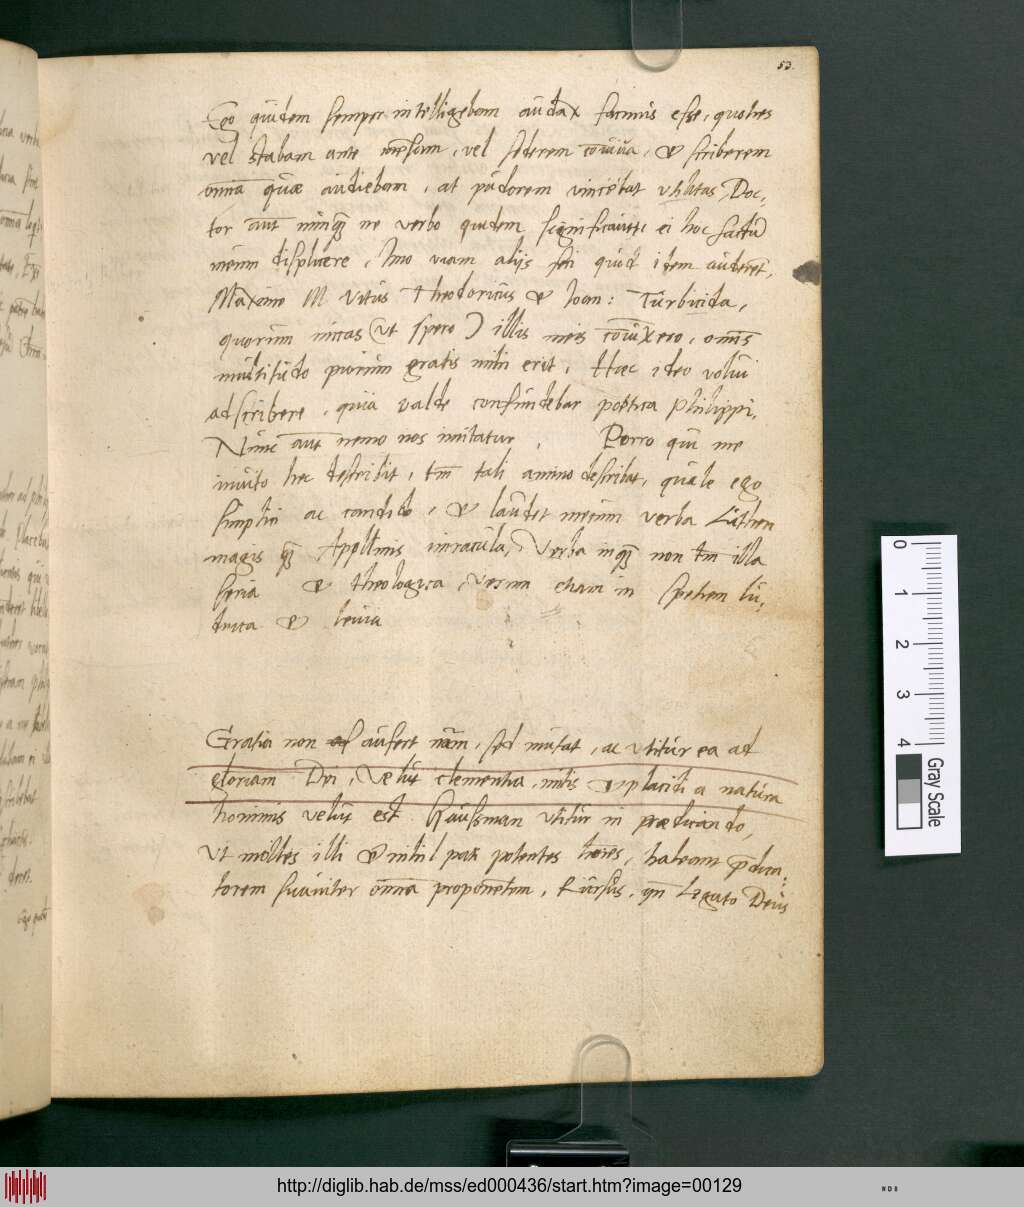 53.
Ego quidem semper intelligebam audax facinus esse, quoties
vel stabam ante mensam, vel sederem cōuiua, & scriberem
omnia quæ audiebam, at pudorem vincebat vtilitas Doc,,
tor aut nunq̃ ne verbo quidem significauit ei hoc factū
meum displicere, Imo viam alijs feci quid idem auderēt,
Maxime M Vitus Theodoricus & Ioan: Turbicida,
quorum micas (ut spero) illis meis cōiūxero, omīs
multitudo piorum gratis mihi erit, Hæc ideo volui
adscribere, quia valde confundebar poetica philippi.
Nunc aut nemo nos imitatur, Porro qui me
inuito hec describit, tm̄ tali animo describat, quale ego
simplici ac candido, & laudet mecum verba Luthen
magis q̃ Apollinis miracula, Verba inq̃ non tm̄ illa
seria & theologica, verum etiam in speciem lu,,
dicra & leuia
Gratia non aufert nām, sed mutat, ac vtitur ea ad
gloriam Dei, Velut clementia, mitis & placidi a natura
hominis velut est Hausman vtitur in prædicando,
Vt molles illi & nihil pati potentes hoīes, habeant p̄dica,,
torem suauiter omnia proponētem, Rursus, qn̄ Legato Deus
0 1 2 3 4
Gray Scale
http://diglib.hab.de/mss/ed000436/start.htm?image=00129